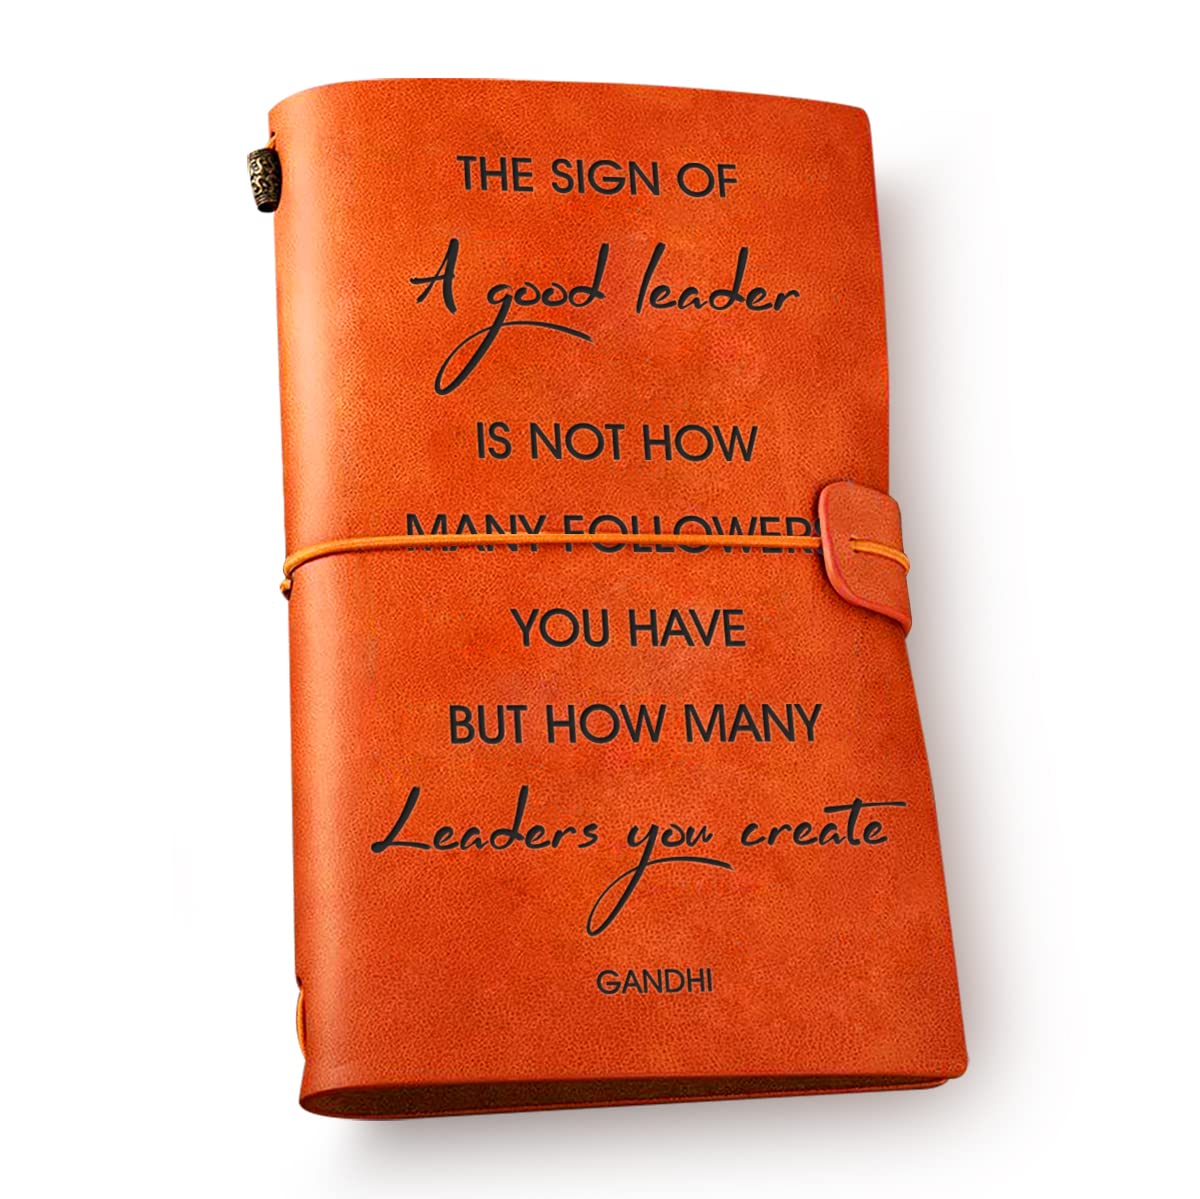 THE SIGN OF
A good leader
IS NOT HOW
MANY FOLLOWERS
YOU HAVE
BUT HOW MANY
Leaders you create
GANDHI